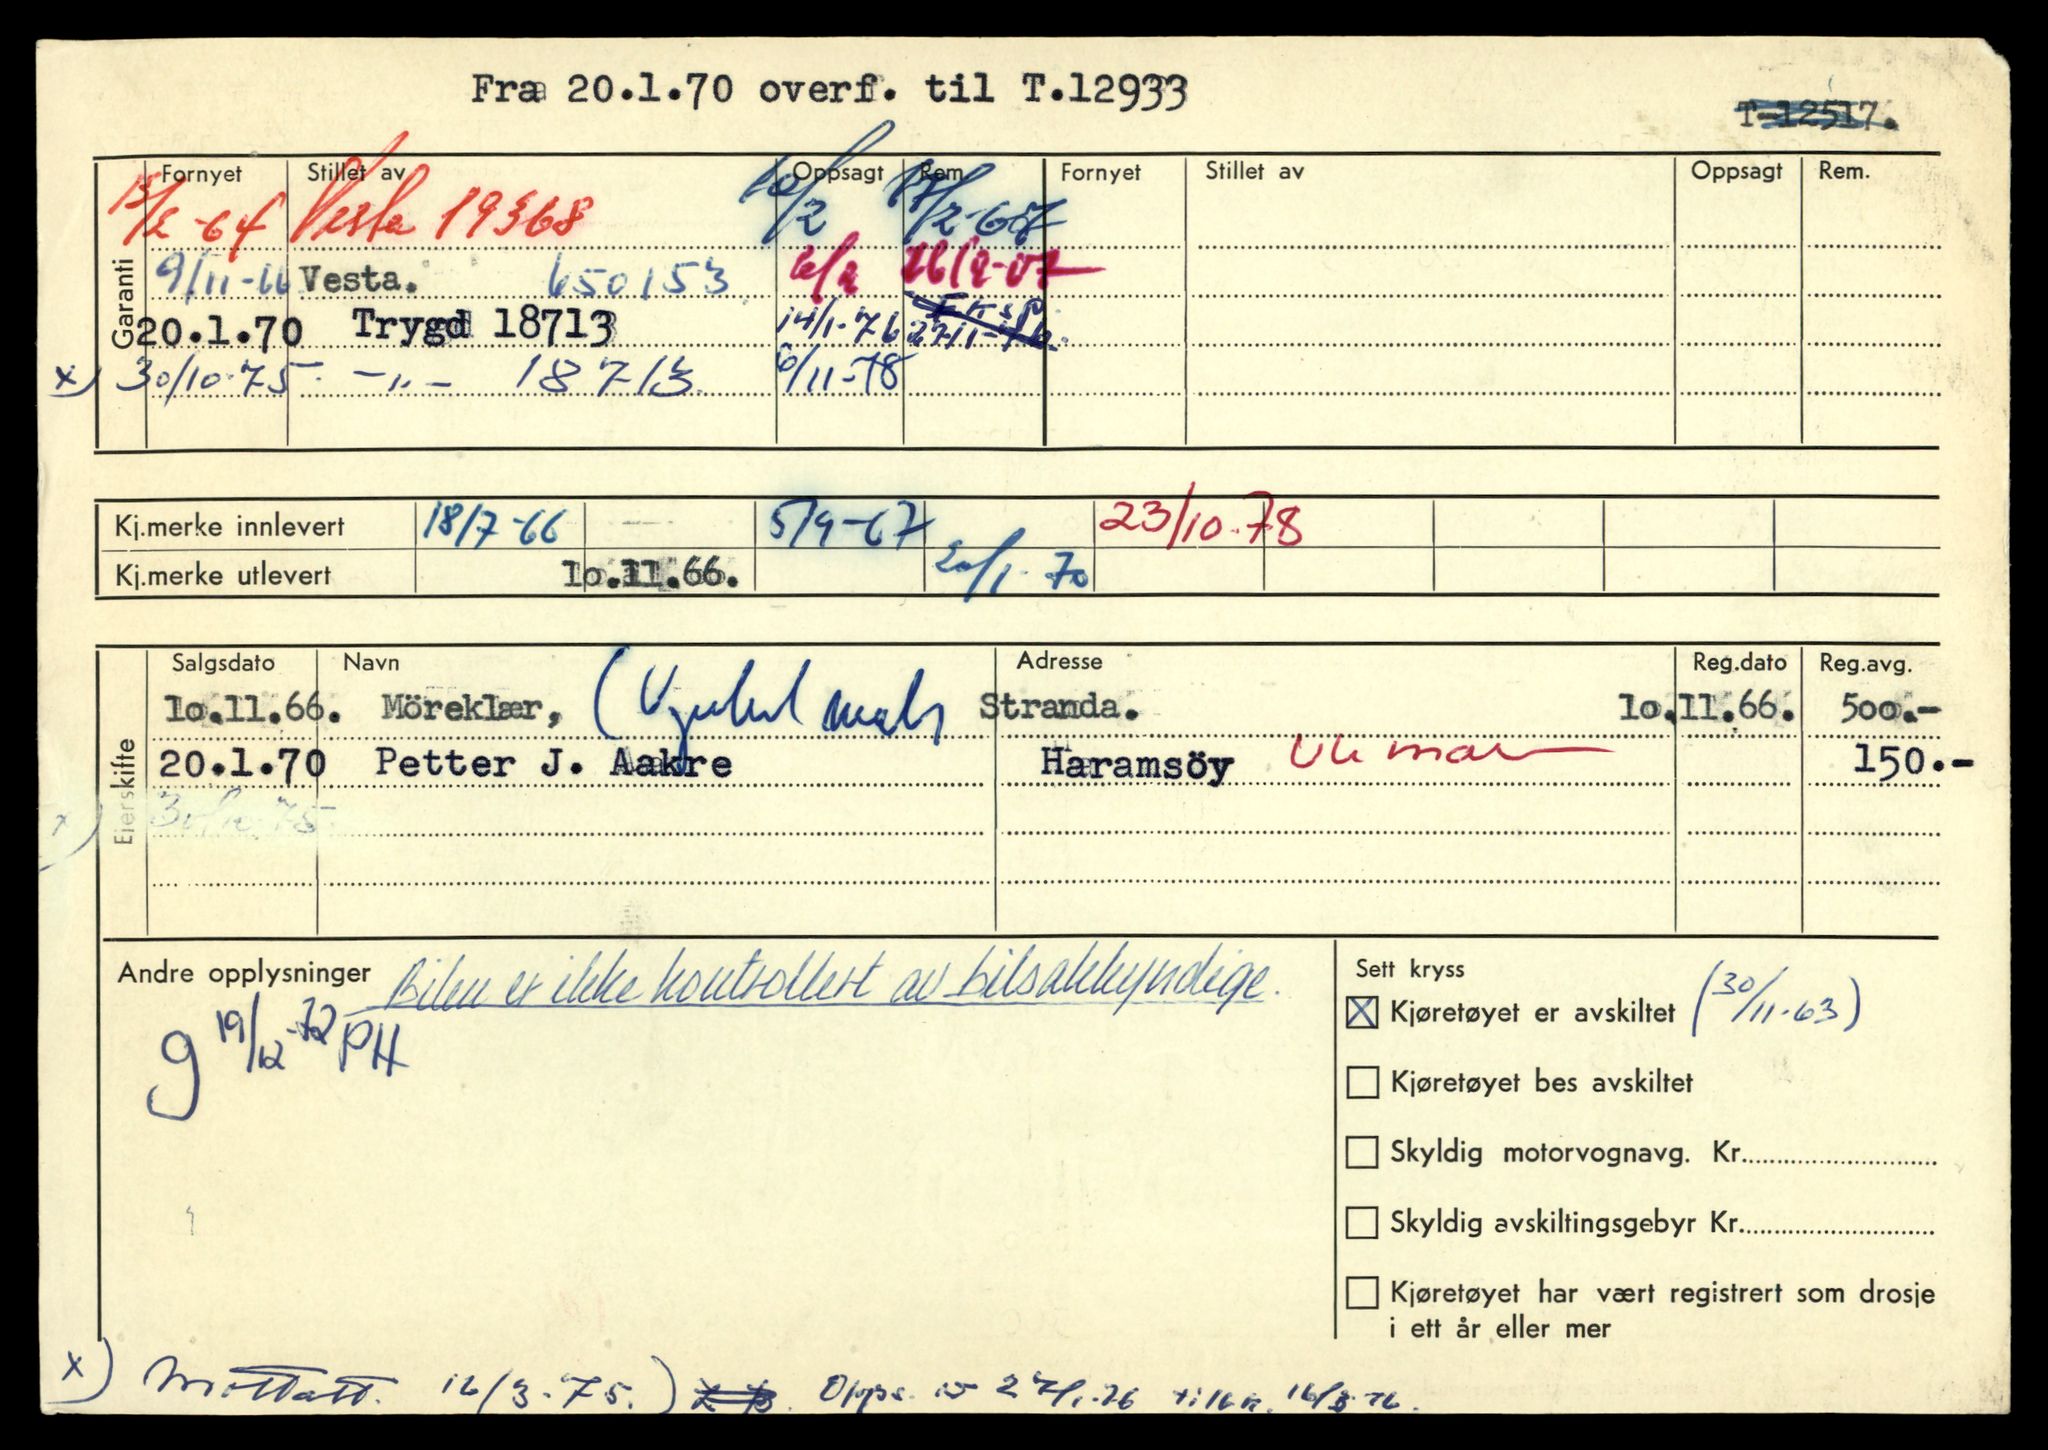 Fra 20.1.70 overf. til T.12933
T-12517.
Garanti
Fornyet Stillet av Oppsagt Rem. Fornyet Stillet av Oppsagt Rem.
Vesta 19368
9/11-66 Vesta. 650153
20.1.70 Trygd 18713 14/1-76
x) 30/10-75 -"- 18713. 6/11-78
Kj.merke innlevert 18/7-66 5/9-67 23/10-78
Kj.merke utlevert 10.11.66. 20/1-70
Eierskifte
Salgsdato Navn Adresse Reg.dato Reg.avg.
10.11.66. Möreklær, Stranda. 10.11.66. 500.-
20.1.70 Petter J. Aakre Haramsöy 150.-
x) 30/10-75
Andre opplysninger Bilen er ikke kontrollert av bilsakkyndige.
g 19/12-72 PH
Sett kryss
Kjøretøyet er avskiltet (30/11-63)
Kjøretøyet bes avskiltet
Skyldig motorvognavg. Kr.
Skyldig avskiltingsgebyr Kr.
Kjøretøyet har vært registrert som drosje
i ett år eller mer
x) Mottatt. 16/3-75.) Opps. 27/1-76 16/3-76.